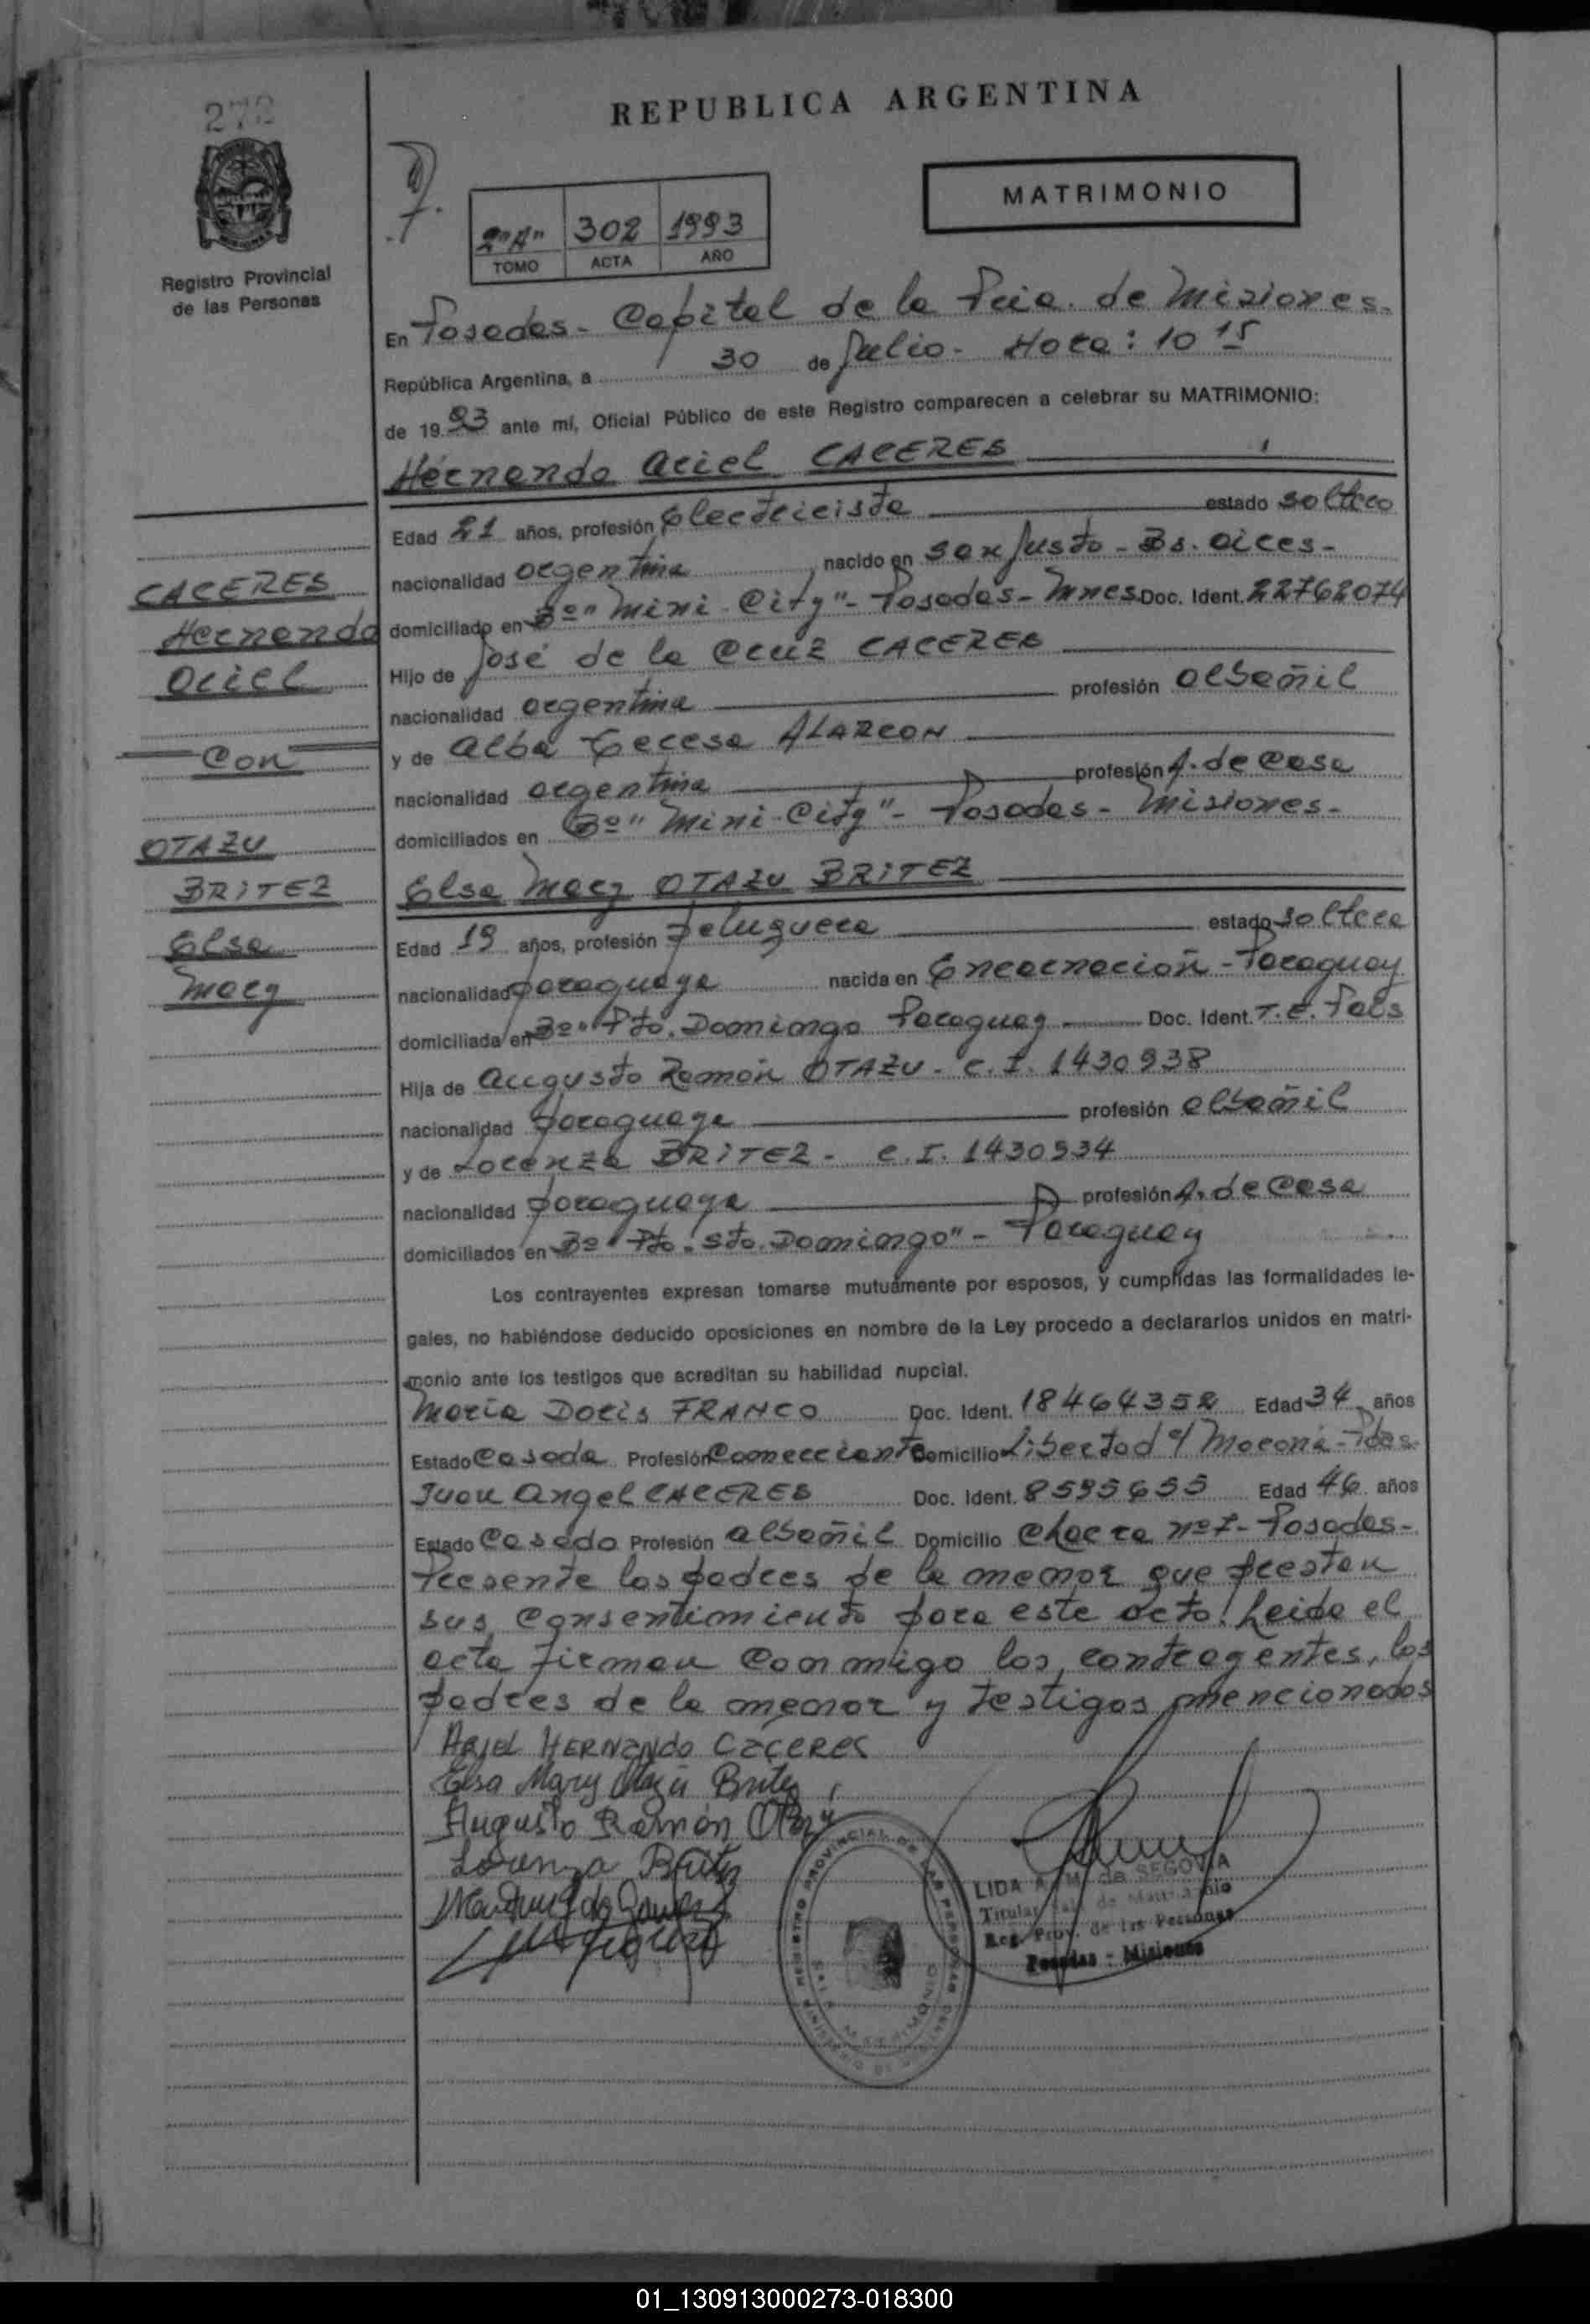 272
REPUBLICA ARGENTINA
MATRIMONIO
2"A" 302 1993
TOMO ACTA AÑO
Registro Provincial
de las Personas
En Posadas - Capital de la Pcia. de Misiones.
República Argentina, a 30 de Julio - Hora: 10 15
de 1993 ante mí, Oficial Público de este Registro comparecen a celebrar su MATRIMONIO:
Hernando Ariel CACERES
Edad 21 años, profesión Electricista estado soltero
nacionalidad argentina nacido en San Justo - Bs. Aires -
domiciliado en Bº "Mini-City" - Posadas - Mnes Doc. Ident. 22762074
Hijo de José de la Cruz CACERES
nacionalidad argentina profesión albañil
y de Alba Teresa ALARCON
nacionalidad argentina profesión A. de Casa
domiciliados en Bº "Mini-City" - Posadas - Misiones -
Elsa Mary OTAZU BRITEZ
Edad 19 años, profesión peluquera estado soltera
nacionalidad paraguaya nacida en Encarnación - Paraguay
domiciliada en Bº "Pto. Domingo Paraguay Doc. Ident. T.E. País
Hija de Augusto Ramón OTAZU - C.I. 1430938
nacionalidad paraguaya profesión albañil
y de Lorenza BRITEZ - C.I. 1430934
nacionalidad paraguaya profesión A. de Casa
domiciliados en Bº "Pto. Sto. Domingo" - Paraguay
Los contrayentes expresan tomarse mutuamente por esposos, y cumplidas las formalidades le-
gales, no habiéndose deducido oposiciones en nombre de la Ley procedo a declararlos unidos en matri-
monio ante los testigos que acreditan su habilidad nupcial.
María Doris FRANCO Doc. Ident. 18464352 Edad 34 años
Estado Casada Profesión Comerciante Domicilio Libertad y Moconá - Pdas
Juan Angel CACERES Doc. Ident. 8595655 Edad 46 años
Estado Casado Profesión albañil Domicilio Chacra nº 7 - Posadas -
Presente los padres de la menor que prestan
sus Consentimiento para este acto! Leída el
acta firman conmigo los contrayentes, los
padres de la menor y testigos mencionados
CACERES
Hernando
Ariel
Con
OTAZU
BRITEZ
Elsa
Mary
Ariel HERNANDO CACERES
Elsa Mary Otazú Britez
Augusto Ramón Otazú
Lorenza Britez
REGISTRO PROVINCIAL DE LAS PERSONAS
LIDA A. M. de SEGOVIA
Titular Sala de Matrimonio
Reg. Prov. de las Personas
Posadas - Misiones
01_130913000273-018300